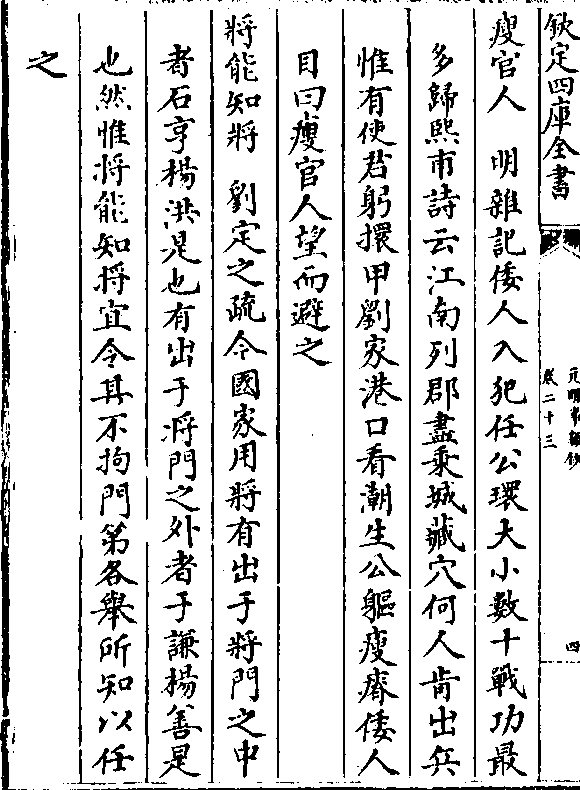 欽定四庫全書
元明事類鈔
卷二十三
四
瘦官人　明雜記倭人入犯任公環大小數十戰功最
多歸熙甫詩云江南列郡盡乗城藏穴何人肯出兵
惟有使君躬擐甲劉家港口看潮生公軀瘦瘠倭人
目曰瘦官人望而避之
將能知將　劉定之疏令國家用將有出于將門之中
者石亨楊洪是也有出于將門之外者于謙楊善是
也然惟將能知將宜令其不拘門第各舉所知以任
之